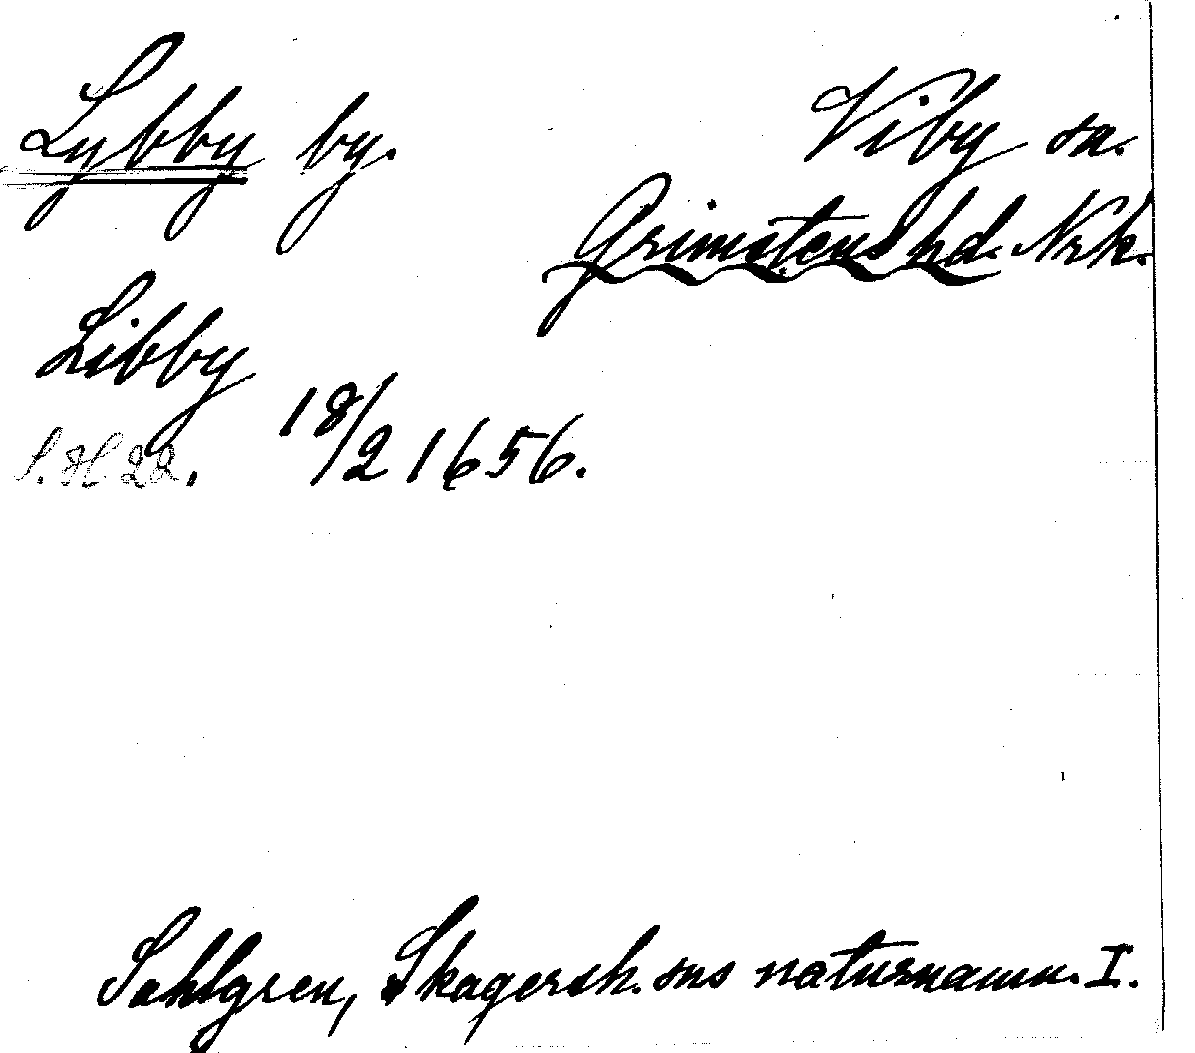 Lybby by.
Viby sn.
Grimstens hd. Nrk.
Libby
18/2 1656.
S. H. 22.
Sahlgren, Skagersh. sns naturnamn. I.